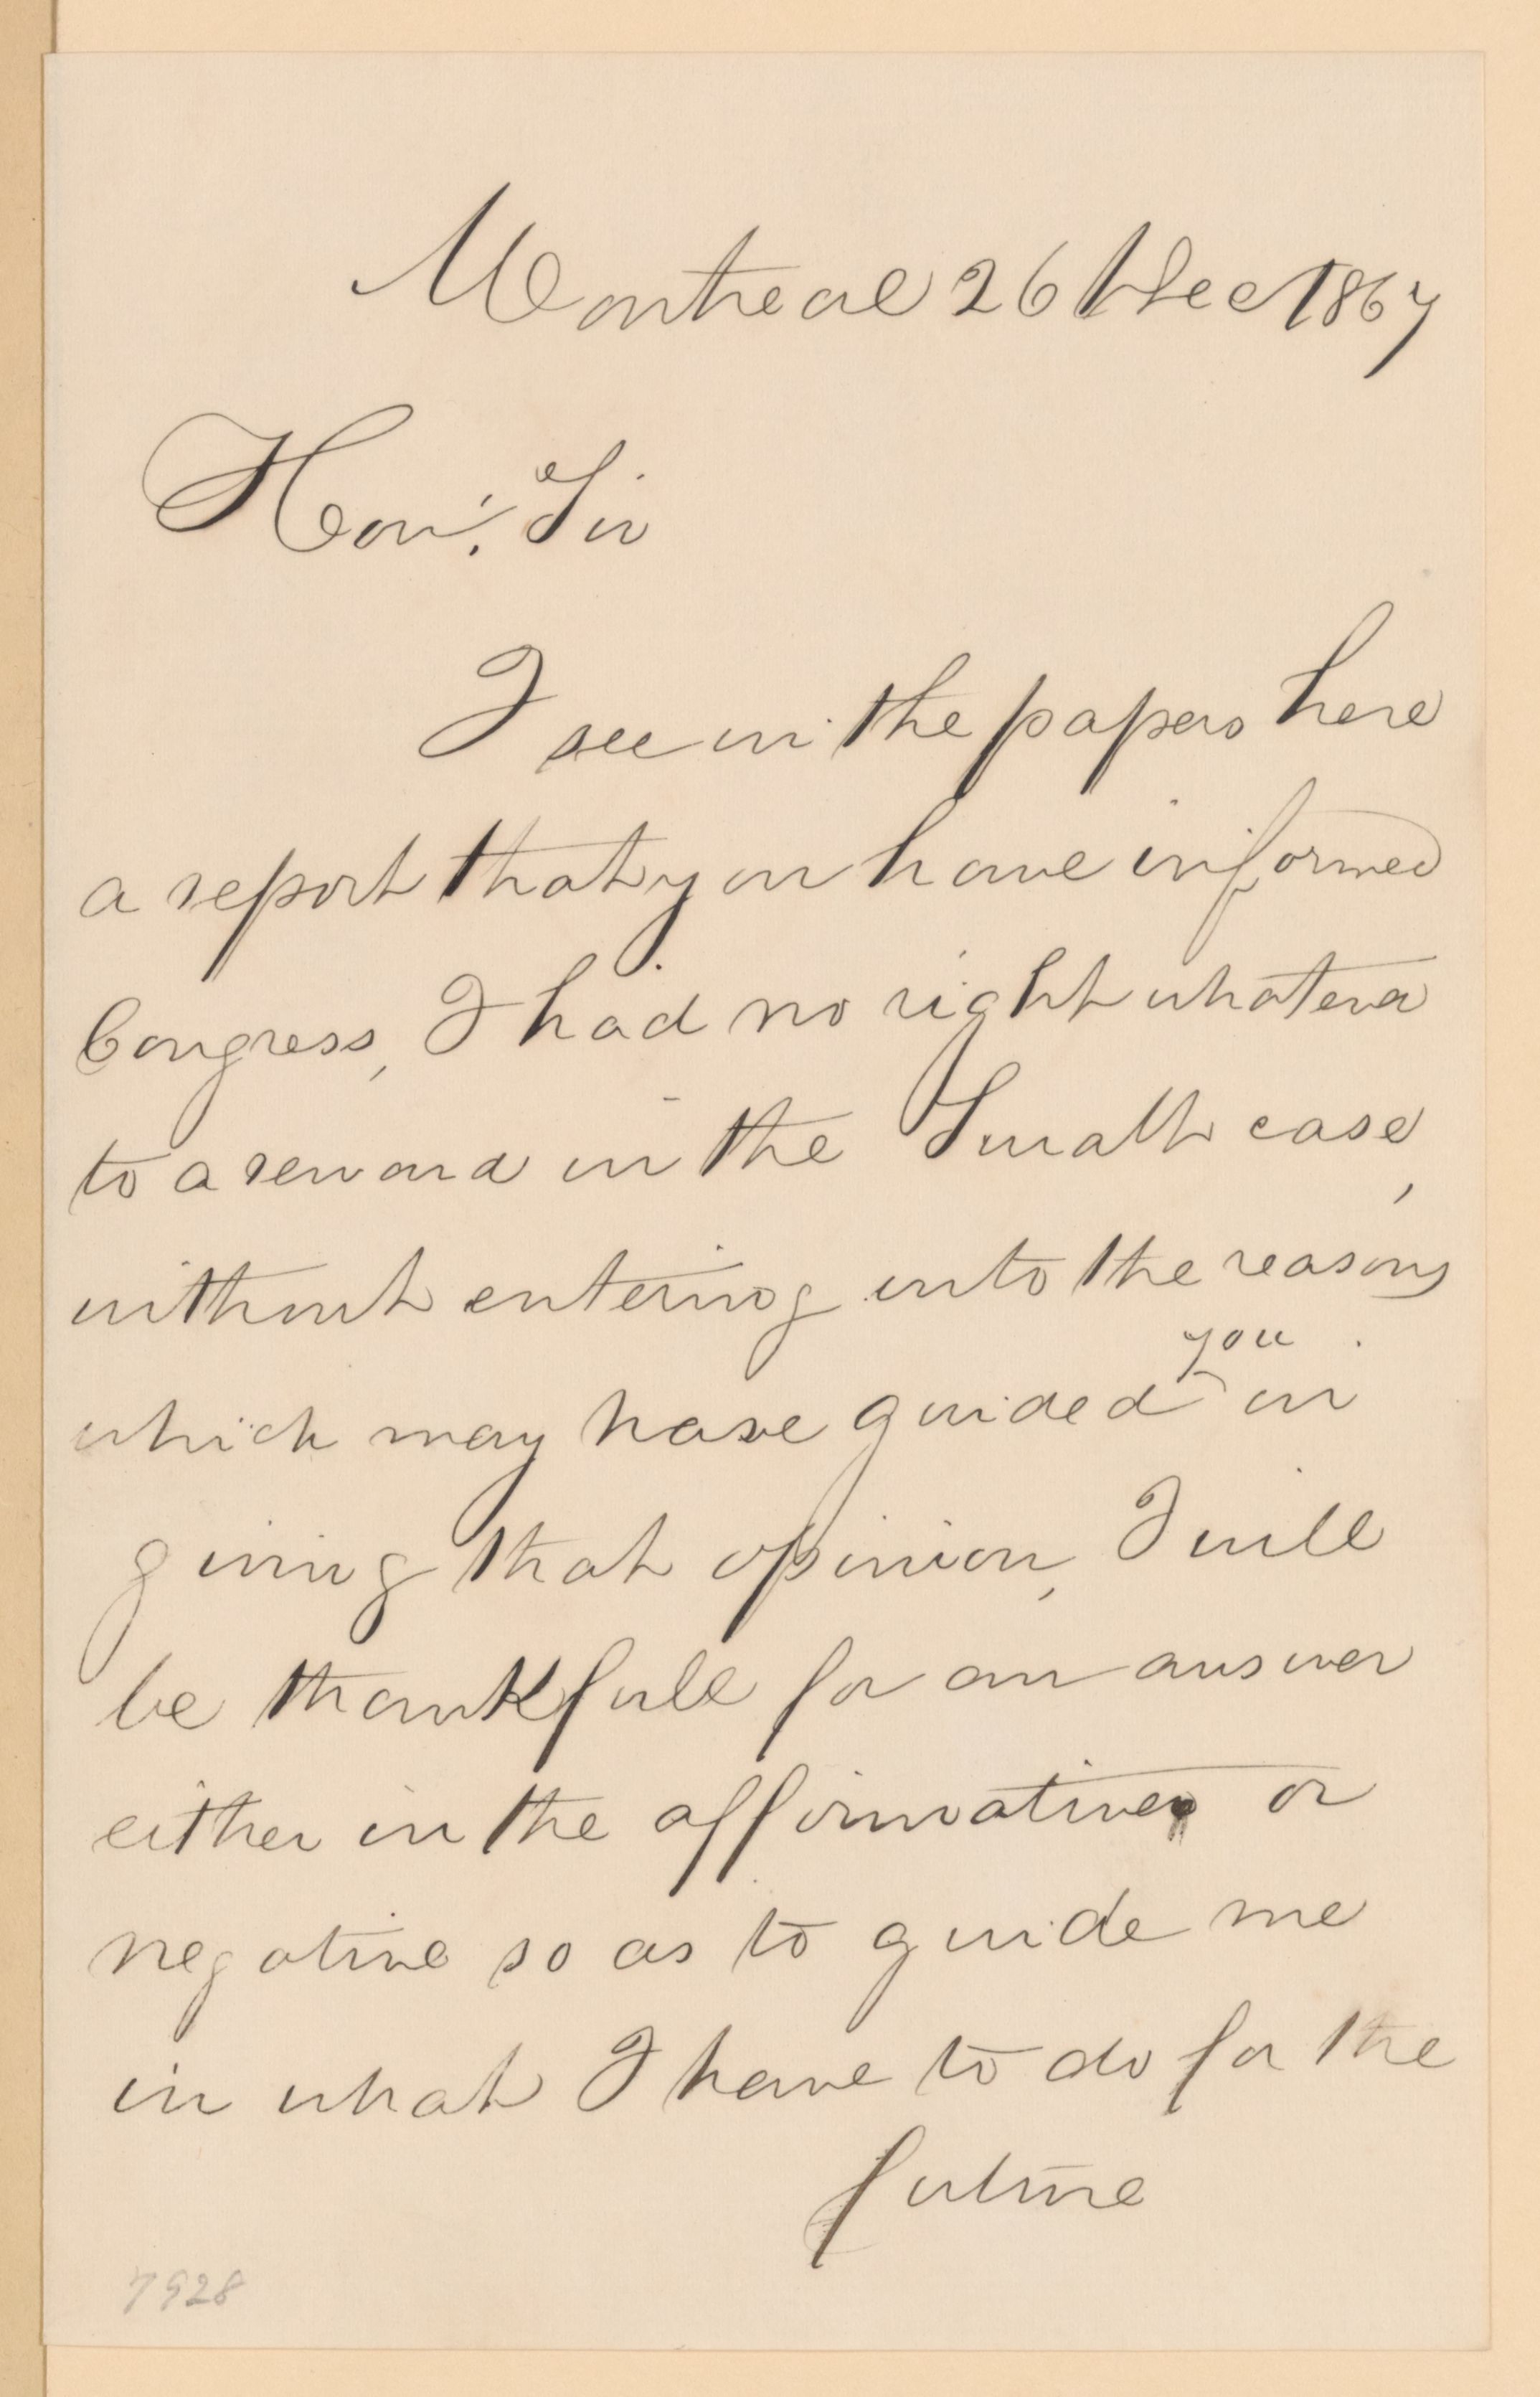 Montreal 26 Dec 1867
Hon'. Sir
I see in the papers here
a report that you have informed
Congress, I had no right whatever
to a reward in the Surratt case,
without entering into the reasons
you
which may have guided ^ in
giving that opinion, I will
be thankfull for an answer
either in the affirmative or
negative so as to guide me
in what I have to do for the
future
7928